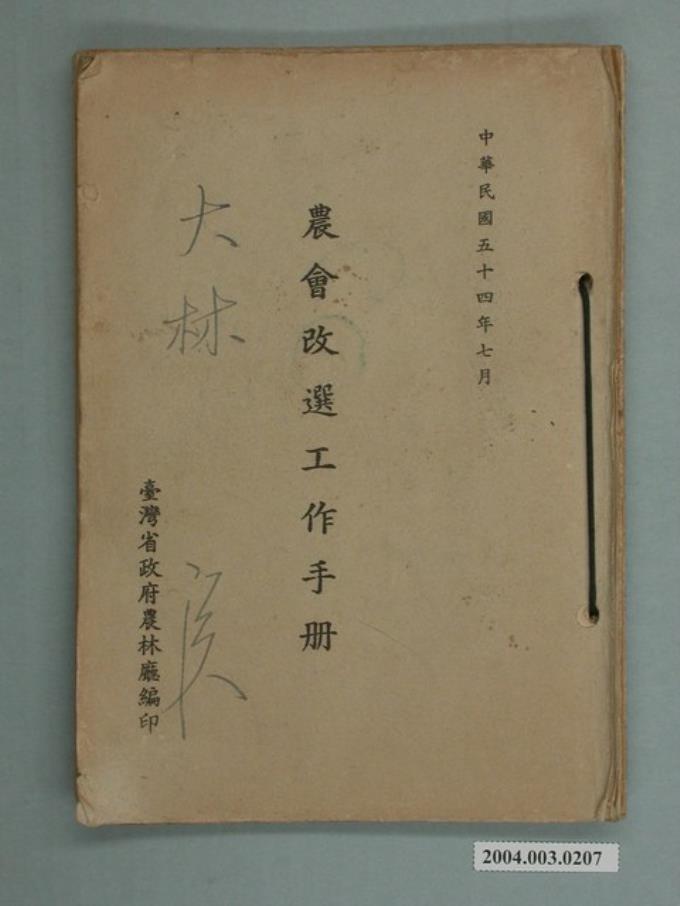 中華民國五十四年七月
農會改選工作手册
大林
臺灣省政府農林廳編印
2004.003.0207